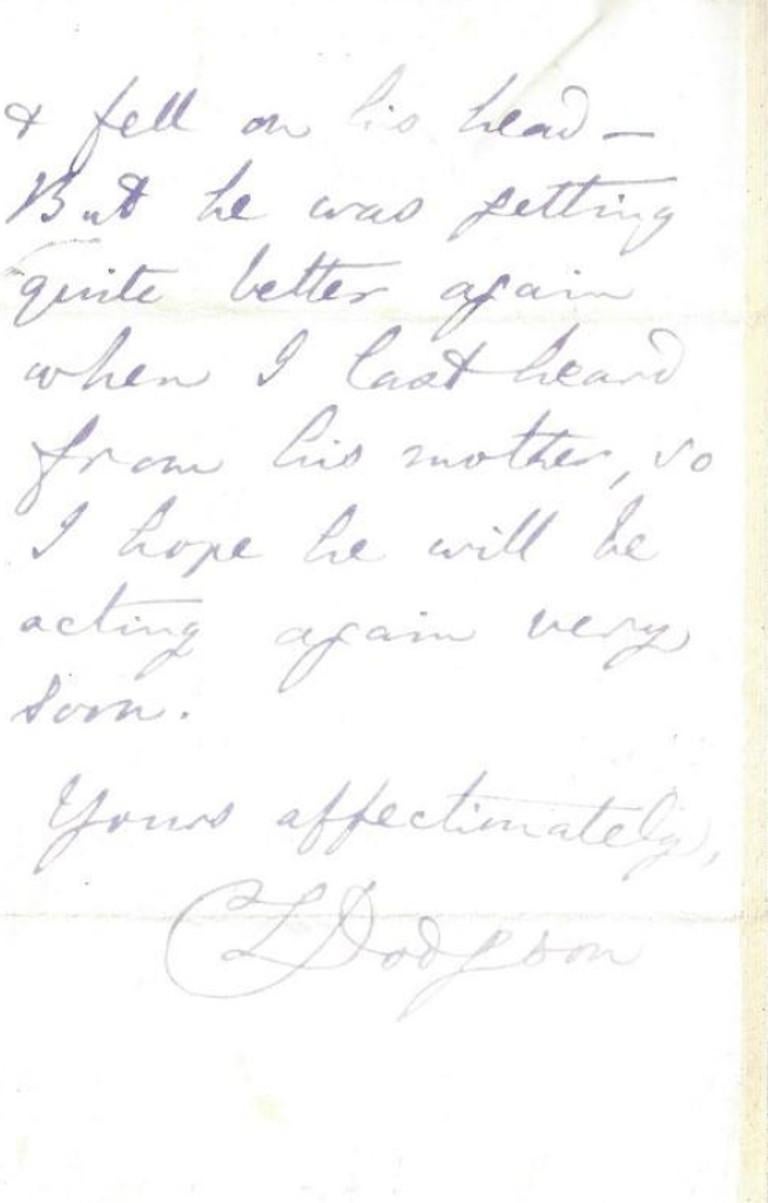 & fell on his head —
But he was getting
quite better again
when I last heard
from his mother, so
I hope he will be
acting again very
soon.
Yours affectionately,
CLDodgson